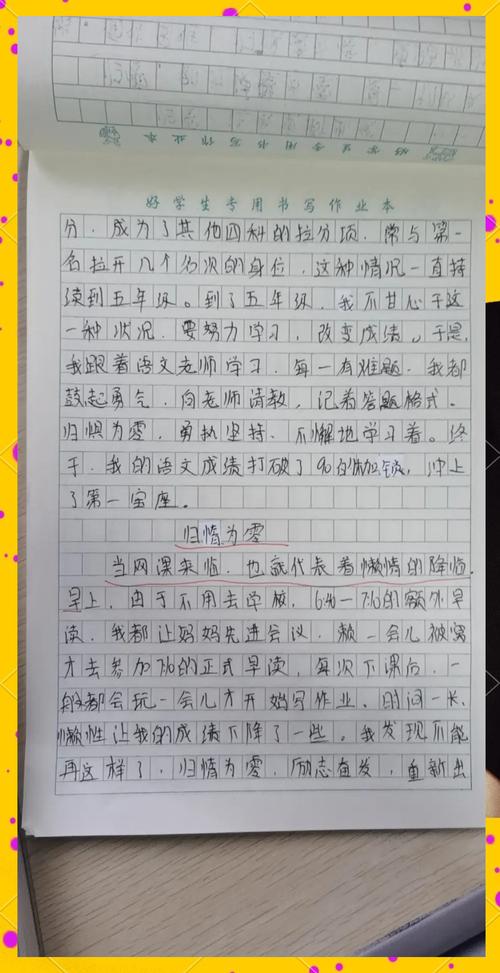 好学生专用书写作业本
分，成为了其他四科的拉分项，常与第一
名拉开几个名次的身位，这种情况一直持
续到五年级。到了五年级，我不甘心于这
一种状况，要努力学习，改变成绩。于是，
我跟着语文老师学习，每一有难题，我都
鼓起勇气，向老师请教，记着答题格式。
归惧为零，勇执坚持，不懈地学习着。终
于，我的语文成绩打破了90的枷锁，冲上
了第一宝座。
归惰为零
当网课来临，也就代表着懒惰的降临。
早上，由于不用去学校，6:40—7:10的额外早
读，我都让妈妈先进会议，赖一会儿被窝
才去参加7:10的正式早读，每次下课后，一
般都会玩一会儿才开始写作业。时间一长，
懒性让我的成绩下降了一些。我发现不能
再这样了，归惰为零，励志奋发，重新出